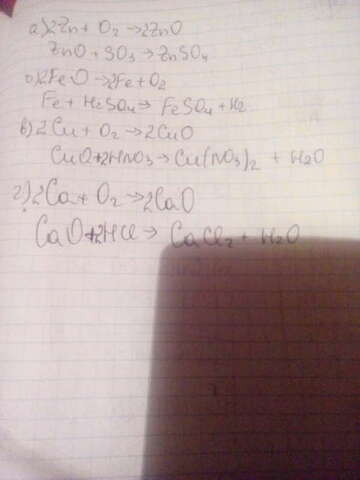 а) 2Zn + O2 → 2ZnO
ZnO + SO3 → ZnSO4
б) 2FeO → 2Fe + O2
Fe + H2SO4 → FeSO4 + H2
в) 2Cu + O2 → 2CuO
CuO + 2HNO3 → Cu(NO3)2 + H2O
г) 2Ca + O2 → 2CaO
CaO + 2HCl → CaCl2 + H2O